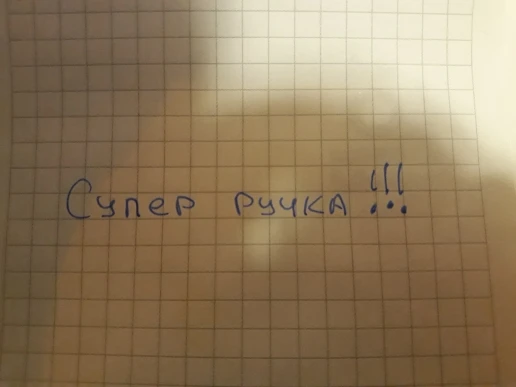 Супер ручка!!!